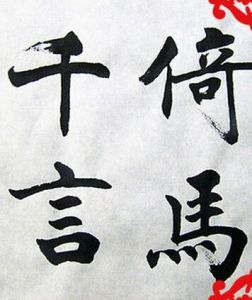 倚馬
千言